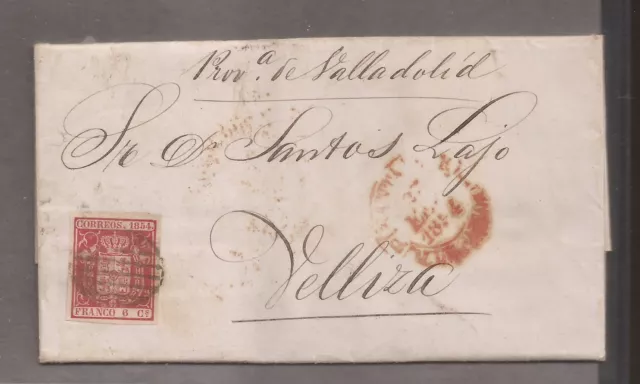 Prov.ª de Valladolid
Sr Dn Santos Lajo
Velliza
CORREOS. 1854.
FRANCO 6 Cs
1854